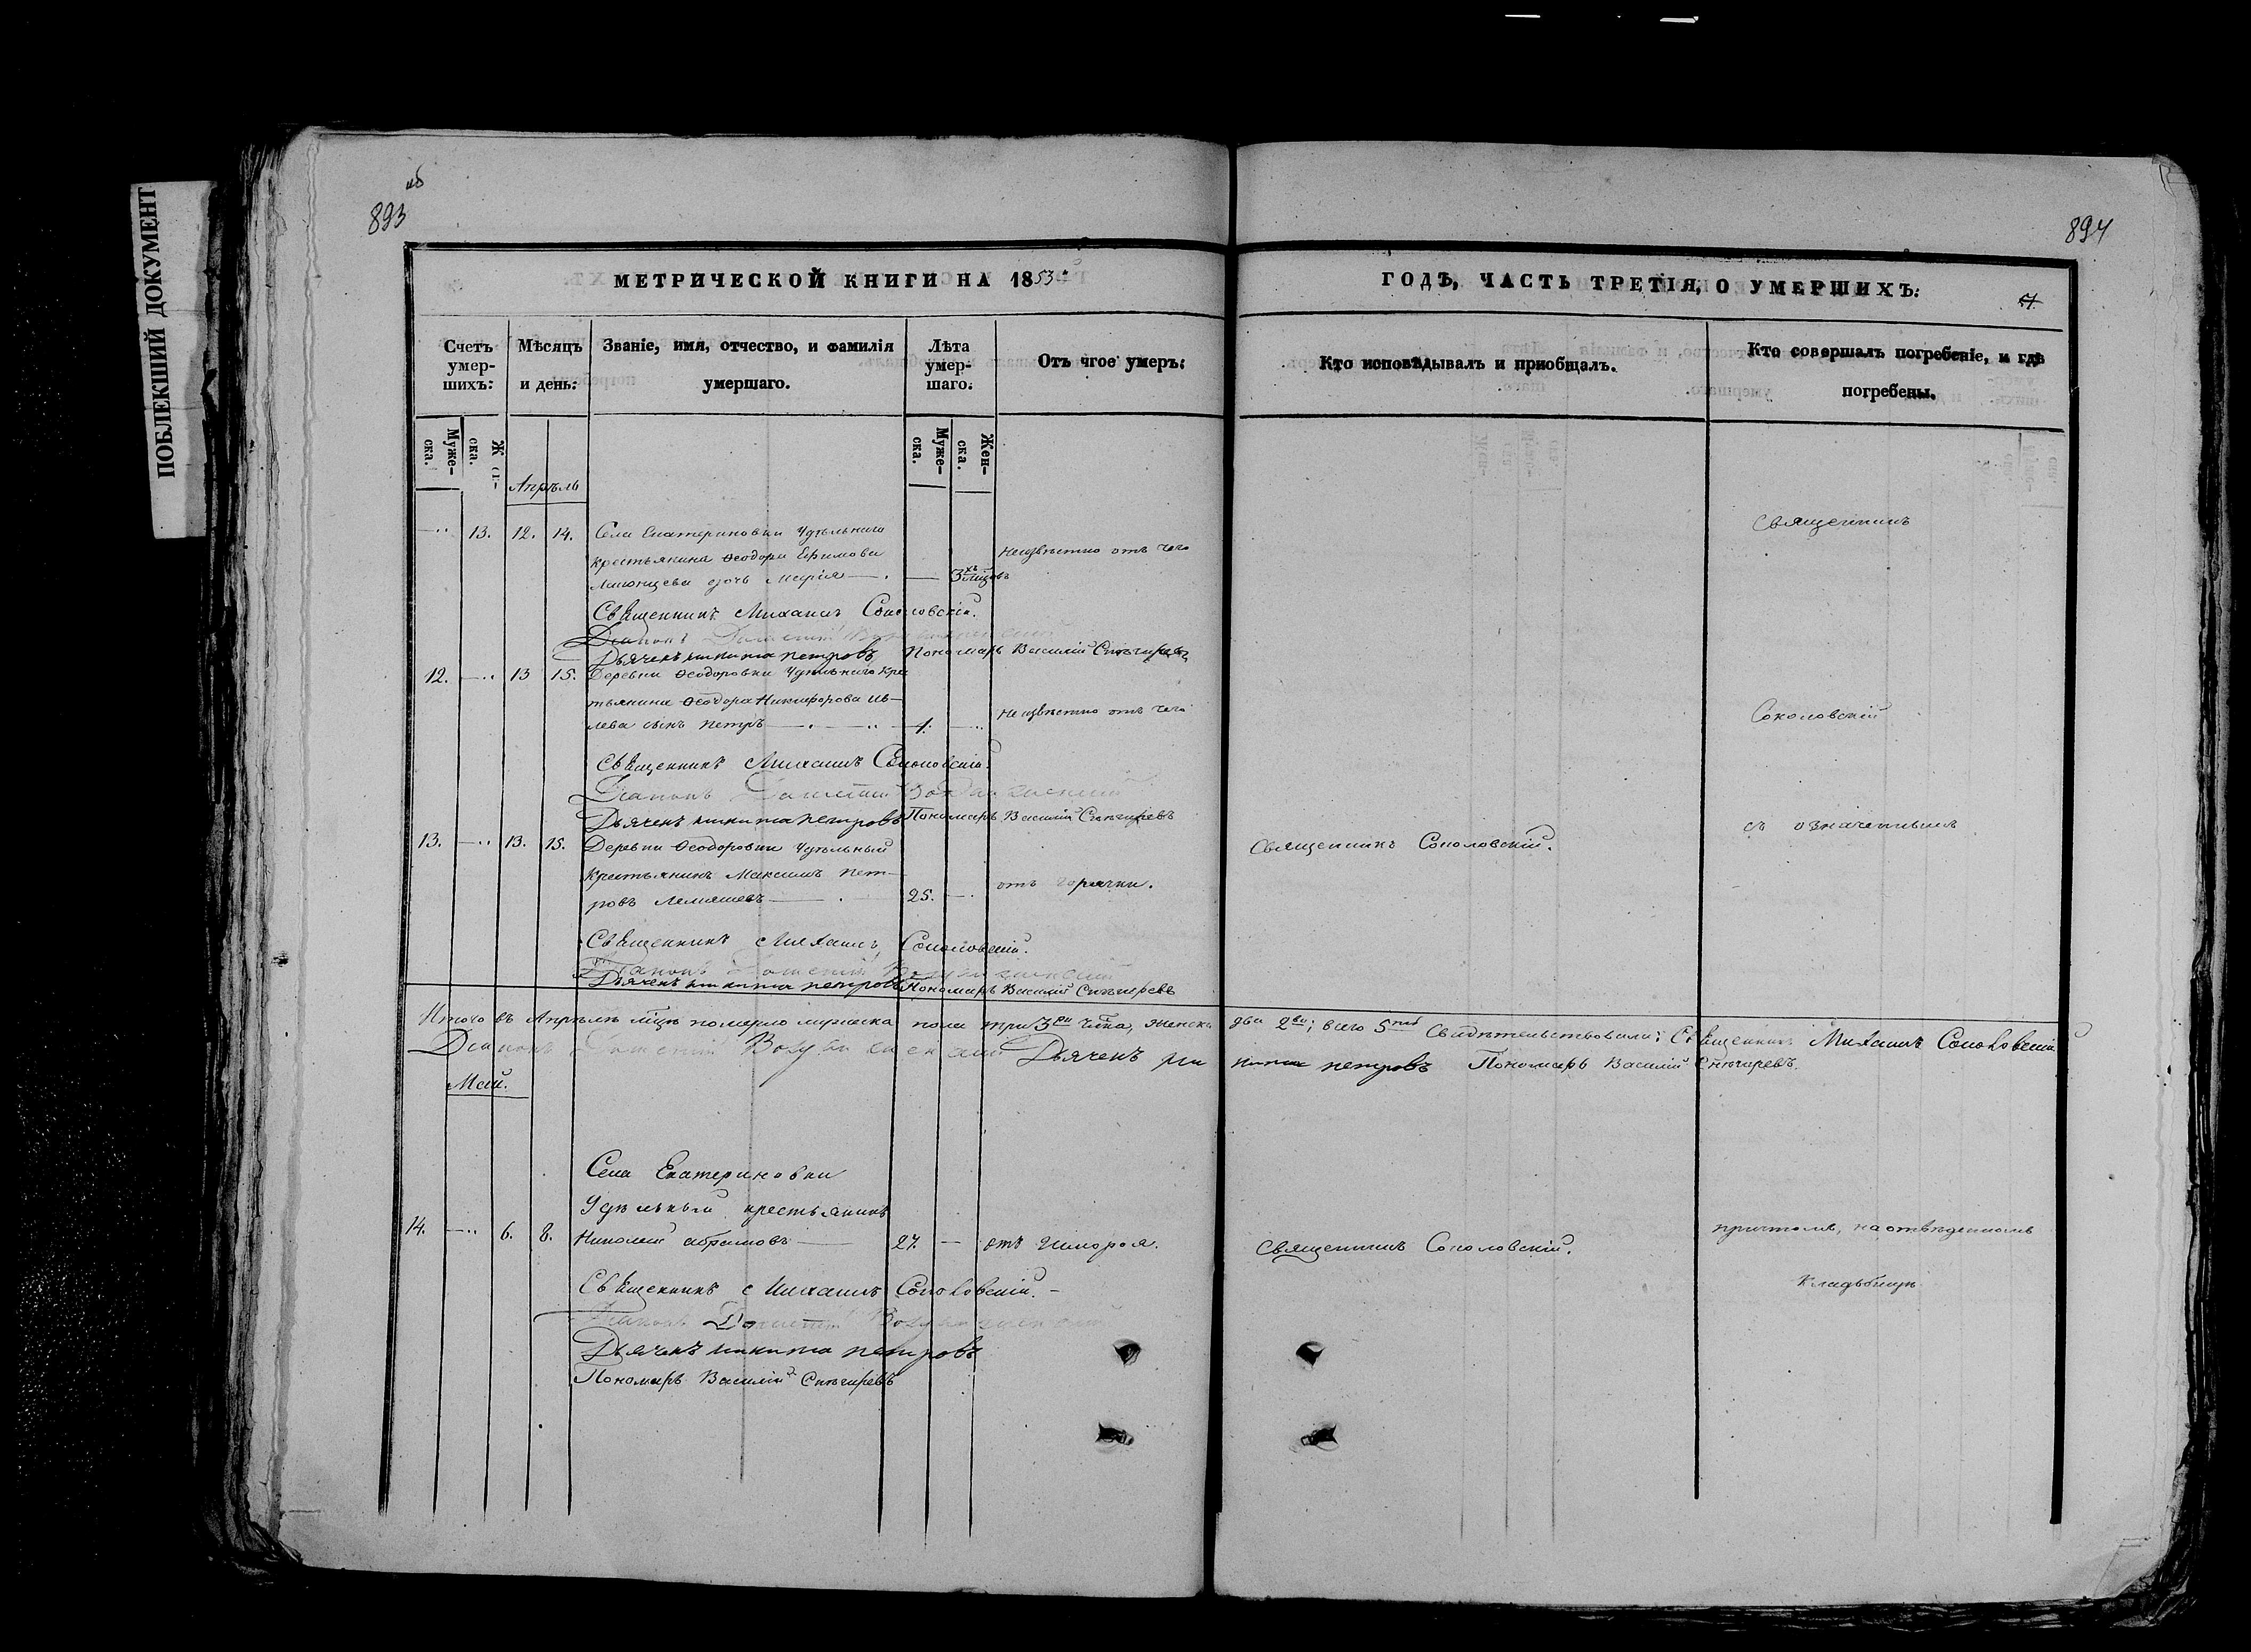 ПОБЛЕКШИЙ ДОКУМЕНТ
893
894
МЕТРИЧЕСКОЙ КНИГИ НА 1853
ГОДЪ, ЧАСТЬ ТРЕТІЯ, О УМЕРШИХЪ:
Счетъ умер-шихъ:
Мѣсяцъ и день:
Званіе, имя, отчество, и фамилія умершаго.
Лѣта умер-шаго:
Отъ чгое умеръ:
Кто исповѣдывалъ и пріобщалъ.
Кто совершалъ погребеніе, и гдѣ погребены.
Муже-ска.
ска.
Муже-ска.
Жен-ска.
Апрѣль
13. 12. 14. Села Екатериновки Удѣльнаго
крестьянина Ѳеодора Ефимова
дочь Марія
Неизвѣстно отъ чего
Священникъ
Священникъ Михаилъ Соколовскій.
Діаконъ
Дьячекъ Никита Петровъ Пономарь Василій Снѣгиревъ
12. 13 15. Деревни Ѳеодоровки Удѣльнаго Крес
тьянина Ѳеодора Никифорова Ив-
лева сынъ Петръ 1.
Неизвѣстно отъ чего
Соколовскій
Священникъ Михаилъ Соколовскій.
Діаконъ
Дьячекъ Никита Петровъ Пономарь Василій Снѣгиревъ
съ означеннымъ
13. 13. 15. Деревни Ѳеодоровки Удѣльный
Крестьянинъ Максимъ Пет-
ровъ Лемяшевъ 25.
отъ горячки.
Священникъ Соколовскій.
Священникъ Михаилъ Соколовскій.
Діаконъ
Дьячекъ Никита Петровъ Пономарь Василій Снѣгиревъ
Итого въ Апрѣлѣ мцѣ померло мужеска пола три 3ри женска два 2ва; всего 5ть Свидѣтельствовали: Священникъ Михаилъ Соколовскій
Діаконъ Дьячекъ Никита Петровъ Пономарь Василій Снѣгиревъ.
Май.
Села Екатериновки
Удѣльный крестьянинъ
14. 6. 8. Николай Абрамовъ 27. отъ
Священникъ Соколовскій.
причтомъ, на отведенномъ
кладбищѣ
Священникъ Михаилъ Соколовскій.
Діаконъ
Дьячекъ Никита Петровъ
Пономарь Василій Снѣгиревъ